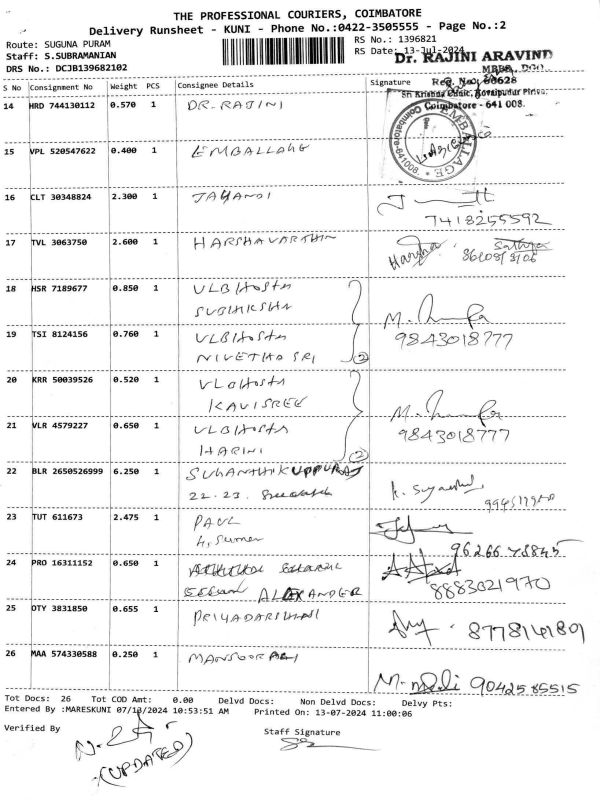 THE PROFESSIONAL COURIERS, COIMBATORE
Delivery Runsheet - KUNI - Phone No.:0422-3505555 - Page No.:2
Route: SUGUNA PURAM
RS No.: 1396821
Staff: S.SUBRAMANIAN
RS Date: 13-Jul-2024
DRS No.: DCJB139682102
Dr. RAJINI ARAVIND
MBBS, DGO.
S No Consignment No Weight PCS Consignee Details Signature
Reg. No. 80628
Coimbatore - 641 008.
14 HRD 744130112 0.570 1 DR. RAJINI
EMBALLAGE
Coimbatore-641008.
15 VPL 520547622 0.400 1 EMBALLAGE
16 CLT 30348824 2.300 1 JAYANDI
7418255592
17 TVL 3063750 2.600 1 HARSHAVARTHIN
Harsha
18 HSR 7189677 0.850 1 VLBHOSTA
SUBHIKSHA
19 TSI 8124156 0.760 1 VLBHOSTA 9843018777
NIVETHO SRI (2)
20 KRR 50039526 0.520 1 VLBHOSTA
KAVISREE
21 VLR 4579227 0.650 1 VLBHOSTA 9843018777
HARINI (2)
22 BLR 2650526999 6.250 1
22-23.
23 TUT 611673 2.475 1 PAUL
24 PRO 16311152 0.650 1
ALEXANDER 8883021970
25 OTY 3831850 0.655 1 PRIYADARSHNI
26 MAA 574330588 0.250 1 MANSOOR ALI
9042585515
Tot Docs: 26 Tot COD Amt: 0.00 Delvd Docs: Non Delvd Docs: Delvy Pts:
Entered By :MARESKUNI 07/13/2024 10:53:51 AM Printed On: 13-07-2024 11:00:06
Verified By Staff Signature
(UPDATED)